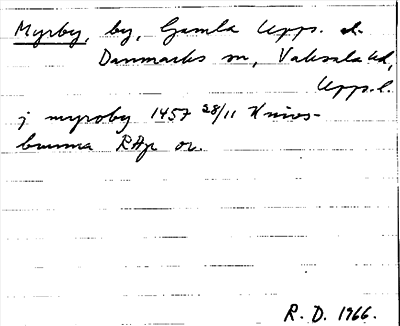 Myrby, by, Gamla Upps. el.
Danmarks sn, Vaksala hd,
Upps. l.
j myroby 1457 28/11 Knivs-
brunna RAp or.
R. D. 1966.